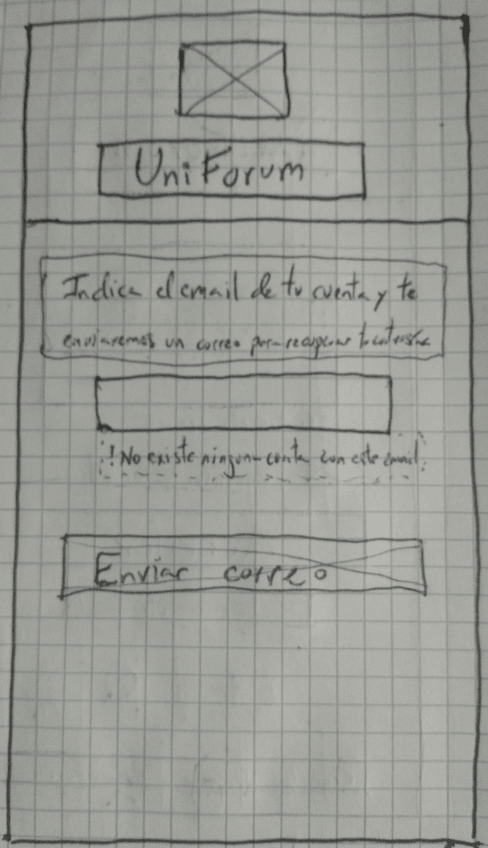 UniForum
Indica el email de tu cuenta y te
enviaremos un correo para recuperar tu contraseña
! No existe ninguna cuenta con este email.
Enviar correo